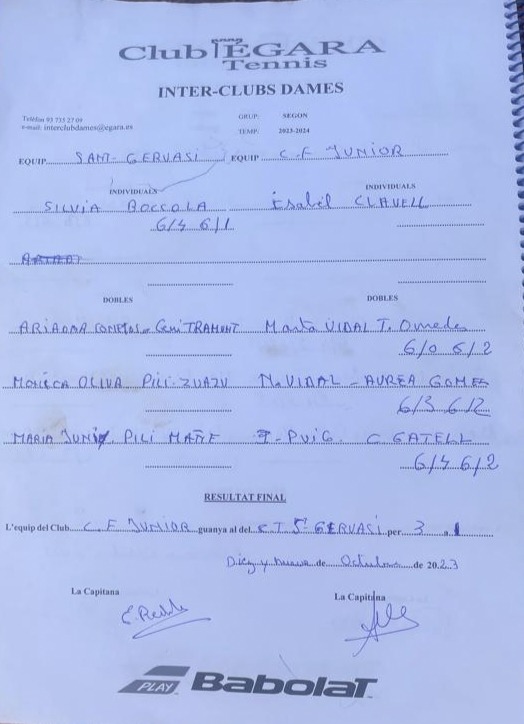 Club EGARA
Tennis
INTER-CLUBS DAMES
Telèfon 93 733 27 09
e-mail: interclubdames@egara.es
GRUP: SEGON
TEMP: 2023-2024
EQUIP SANT GERVASI EQUIP C.F JUNIOR
INDIVIDUALS INDIVIDUALS
SILVIA BOCCOLA Isabel CLAVELL
6/4 6/1
DOBLES DOBLES
ARIADNA Marta VIDAL T. Omedes
6/0 6/2
MONICA OLIVA PILI ZUAZU N. VIDAL - AUREA GOMES
6/3 6/2
MARIA PILI MAÑE PUIG. C GATELL
6/4 6/2
RESULTAT FINAL
L'equip del Club C.F JUNIOR guanya al del C.T St GERVASI per 3 a 1
Diez y nueve de Octubre de 2023
La Capitana La Capitana
PLAY Babolat